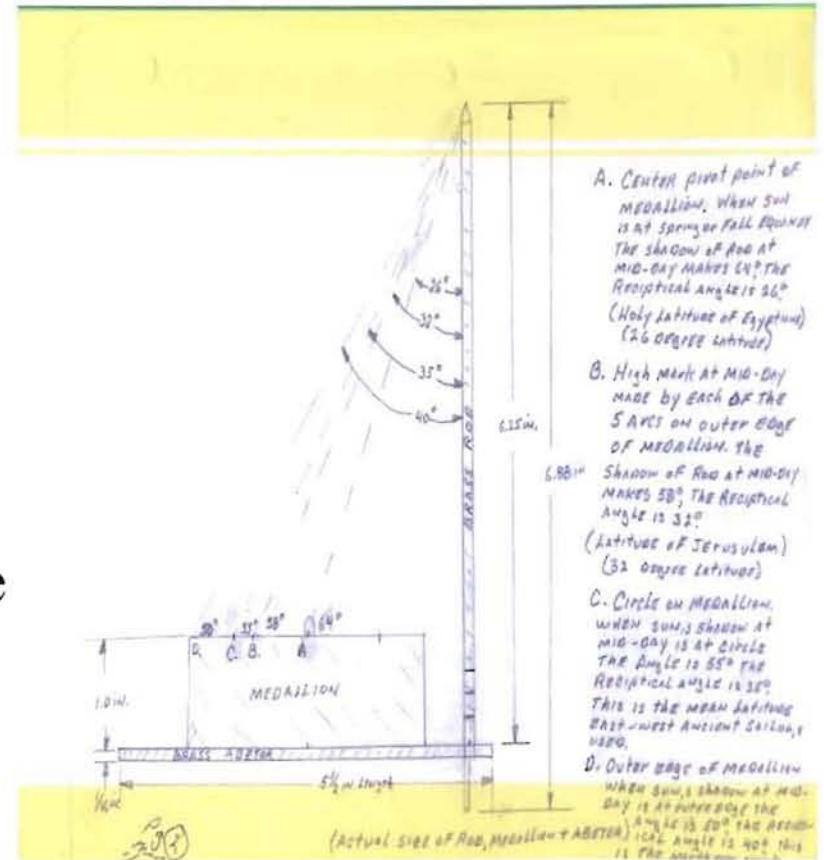 26°
32°
35°
40°
BRASS ROD
6.25 in.
6.88 in
50° 55° 58° 64°
D. C. B. A.
MEDALLION
1.0 in.
BRASS ABETOR
5½ in Length
(Actual size of Rod, Medallion + ABETOR)
A. Center pivot point of
MEDALLION. When Sun
is at Spring or Fall Equinox
The shadow of Rod at
MID-DAY MAKES 64°. The
Reciptical Angle is 26°
(Holy Latitude of Egyptians)
(26 Degree Latitude)
B. High Mark at MID-Day
MADE by EACH OF THE
5 ARCS ON OUTER Edge
OF MEDALLION. THE
Shadow of Rod at MID-DAY
MAKES 58°, The Reciptical
Angle is 32°
(Latitude of Jerusulem)
(32 Degree Latitude)
C. Circle on Medallion.
When sun,s shadow at
MID-DAY is at circle
The Angle is 55° The
Reciptical Angle is 35°
This is the mean Latitude
East-west Ancient Sailor,s
used.
D. Outer edge of Medallion
When sun,s shadow at MID-
Day is at outer edge the
Angle is 50° the Recip-
ical Angle is 40° this
is the
e